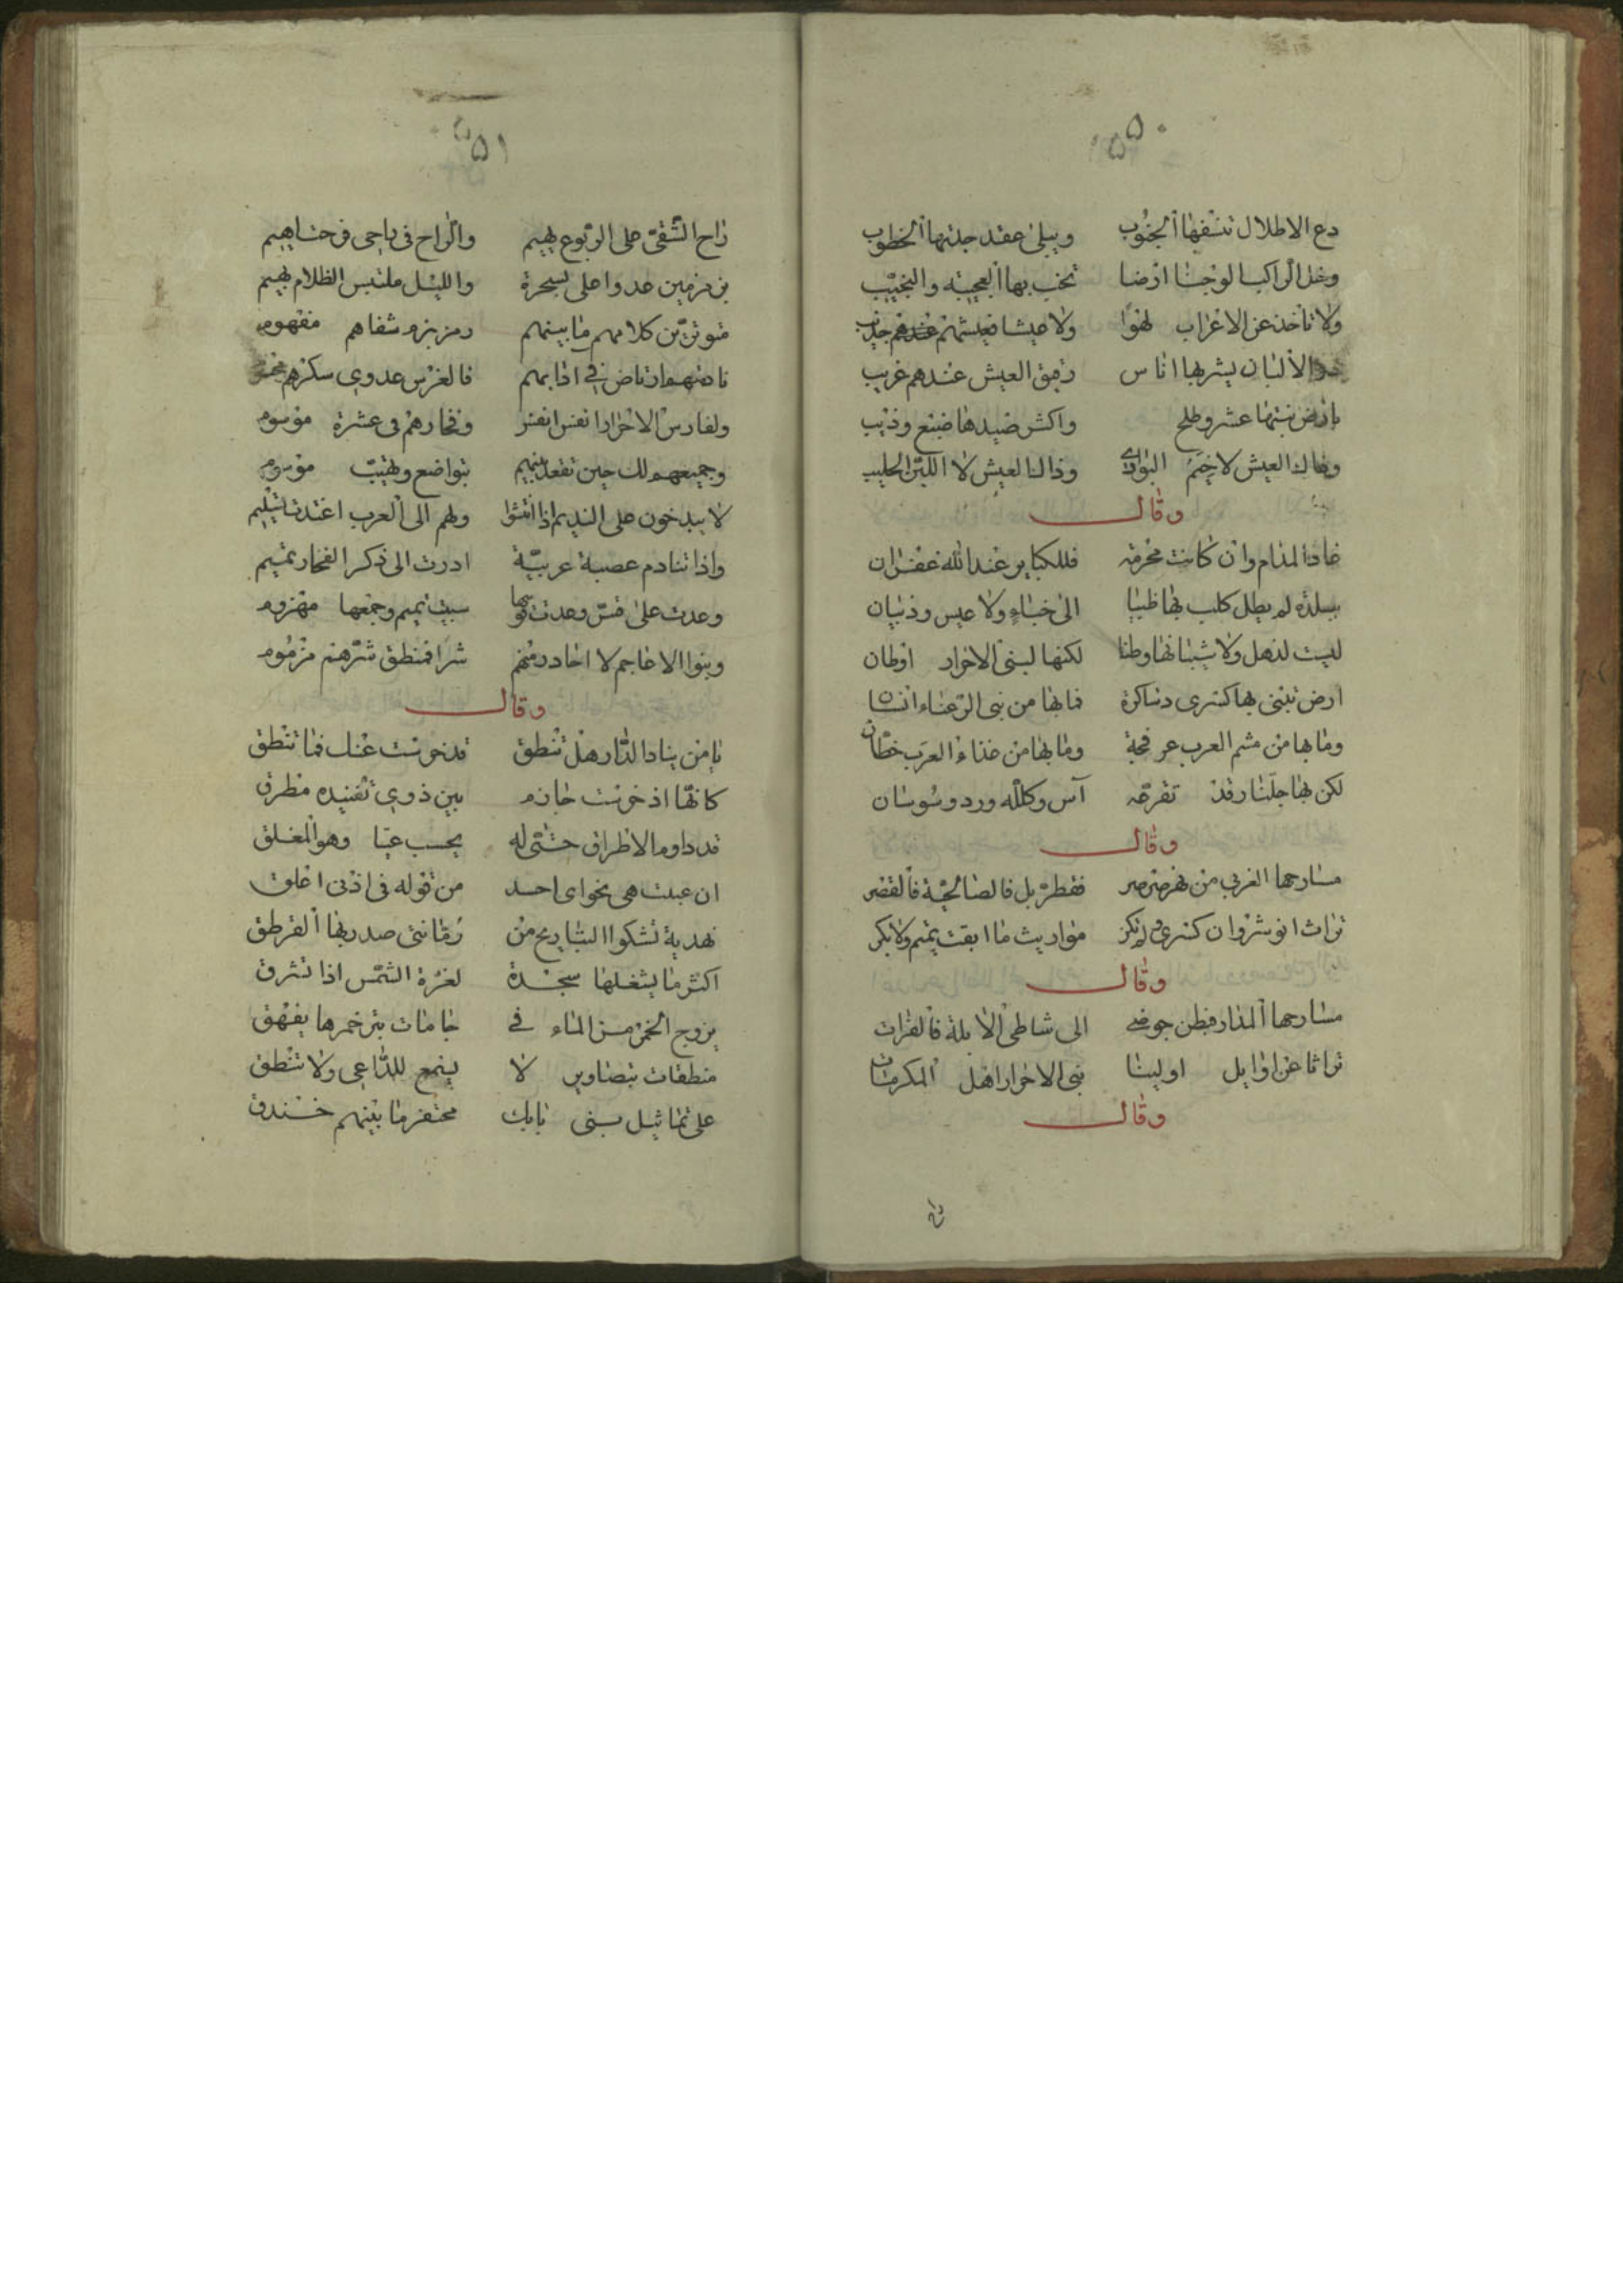 ٥٥٠
دع الاطلال تسفها الجنوب ويبلى عقد جدتها الخطوب
وخل لراكب الوجنا ارضا تخب بها النجيبة والنجيب
ولا تاخذ عن الاعراب لهوا ولا عيشا فعيشهم عندهم جديب
الالبان يشربها اناس رقيق العيش عندهم غريب
بارض نبتها عشر وطلح واكثر صيدها ضبع وذئب
العيش لا خيم البوادى وذا العيش لا اللبن الحليب
وقال
غاد المدام وان كانت محرمة فللكبائر عند الله غفران
ببلدة لم يطل كلب بها طنبا الى خباء ولا عبس وذبيان
ليست لذهل ولا شيبانها وطنا لكنها لبنى الاحرار اوطان
ارض تبنى بها كسرى دساكرة فما بها من بنى الرعناء انسان
وما بها من هشيم العرب عرفجة وما بها من غذاء العرب خطبان
لكن بها جلنار قد تفرعه آس وكلله ورد وسوسان
وقال
مسارحها الغربي من نهر صرصر فقطربل فالصالحية فالقصر
تراث انوشروان كسرى ولم تكن مواريث ما ابقت تميم ولا بكر
وقال
مسارحها المذار فبطن جوخى الى شاطى الابلة فالفرات
تراثا عن اوايل اولينا بنى الاحرار اهل المكرمات
وقال
راح
٥٥١
راح الشقى على الربوع يهيم والراح فى راحى
مزمزمين غدوا على بسحرة والليل ملتبس الظلام بهيم
متوترين كلامهم ما بينهم ومزمزم شفاهم مفهوم
نادمتهم ارتاض فى ادابهم فالفرس عدوى سكرهم
ولفارس الاحرار انفس انفس وفخارهم فى عشرة موسوم
وجميعهم لك حين تقعد بينهم بتواضع وتهيب موسوم
لا يبذخون على النديم اذا انتشوا ولهم الى العرب اعتدت تسليم
واذا تنادم عصبة عربية ادرت الى ذكر الفخار تميم
وعدت على قيس وعدت سبيت تميم وجمعها مهزوم
وبنوا الاعاجم لا احادر منهم شرا فمنطق شرهم مزموم
وقال
يا من ينادا الدار هل تنطق قد خرست عنك فما تنطق
كانها اذ خرست جازم بين ذوى تفنيده مطرق
قد داوم الاطراق حتى له يحسب عيا وهو المغلق
من قوله فى اذنى اغلق
تهدية تشكوا التباريح من رمانتى صدر بها القرطق
اكثر ما يشغلها سجدة لغرة الشمس اذا تشرق
يزوج الخمر من الماء فى جامات تبر خمرها يفهق
منطقات بتصاوير لا يسمع للداعى ولا تنطق
على تماثيل بنى بابك محتفر ما بينهم خندق